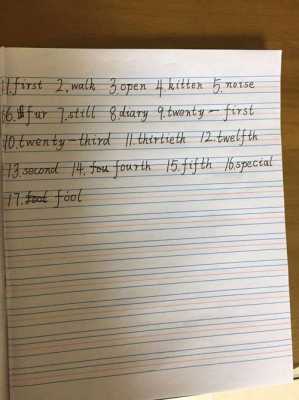 1.first 2.walk 3.open 4.kitten 5.noise
6.fur 7.still 8.diary 9.twenty-first
10.twenty-third 11.thirtieth 12.twelfth
13.second 14.fou fourth 15.fifth 16.special
17.foot fool